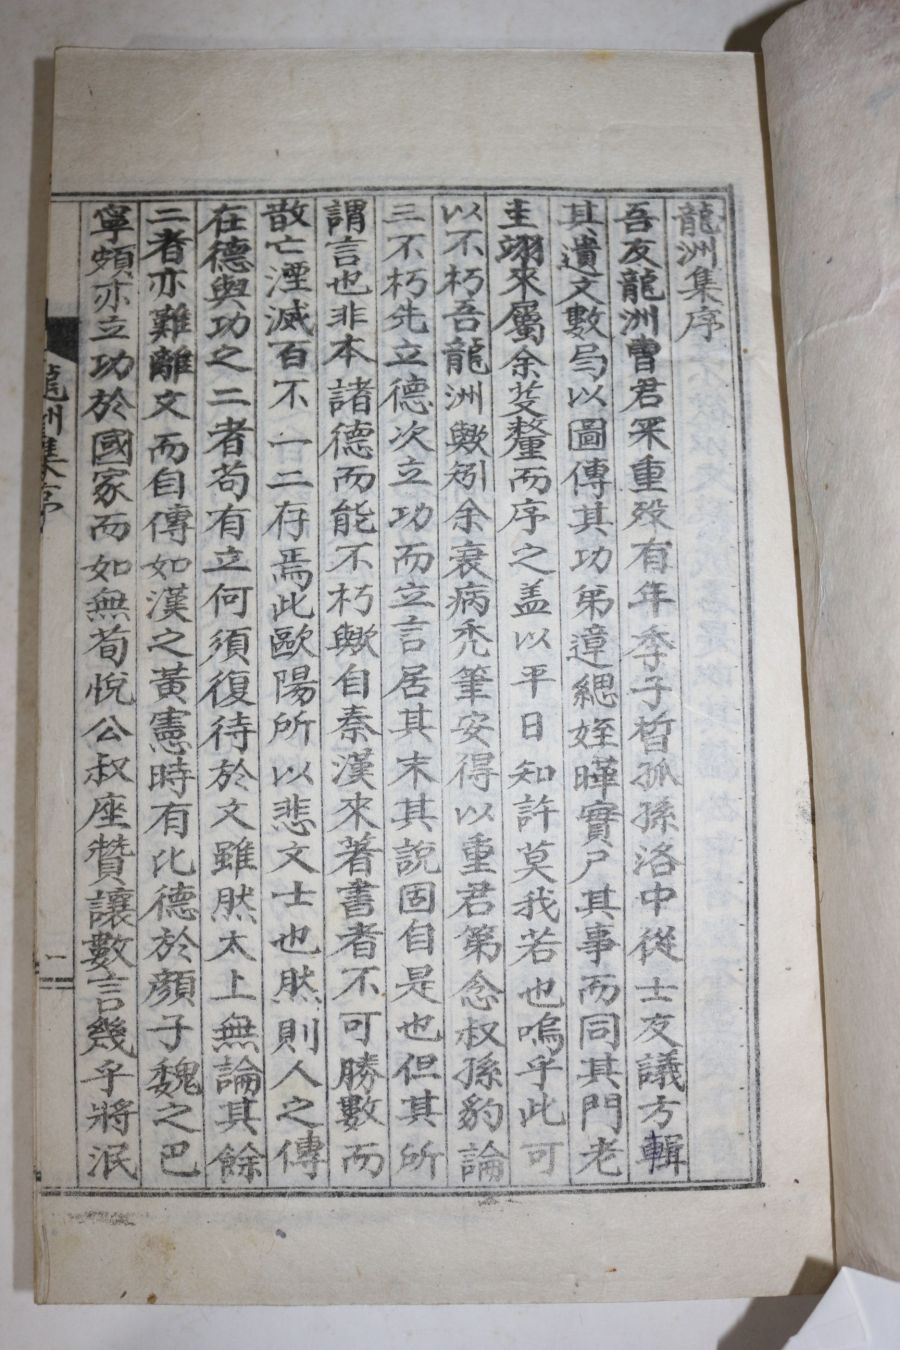 龍洲集序
吾友龍洲曺君采重歿有年季子晢孤孫洛中從士友議方輯
其遺文數局以圖傳其功弟違緦姪曄實尸其事而同其門老
圭翊來屬余芟釐而序之盖以平日知許莫我若也嗚乎此可
以不朽吾龍洲歟矧余衰病禿筆安得以重君第念叔孫豹論
三不朽先立德次立功而立言居其末其說固自是也但其所
謂言也非本諸德而能不朽歟自秦漢來著書者不可勝數而
散亡湮滅百不一二存焉此歐陽所以悲文士也然則人之傳
在德與功之二者苟有立何須復待於文雖然太上無論其餘
二者亦難離文而自傳如漢之黃憲時有比德於顏子魏之巴
寧頗亦立功於國家而如無荀悅公叔座贊讓數言幾乎將泯
龍洲集序
一